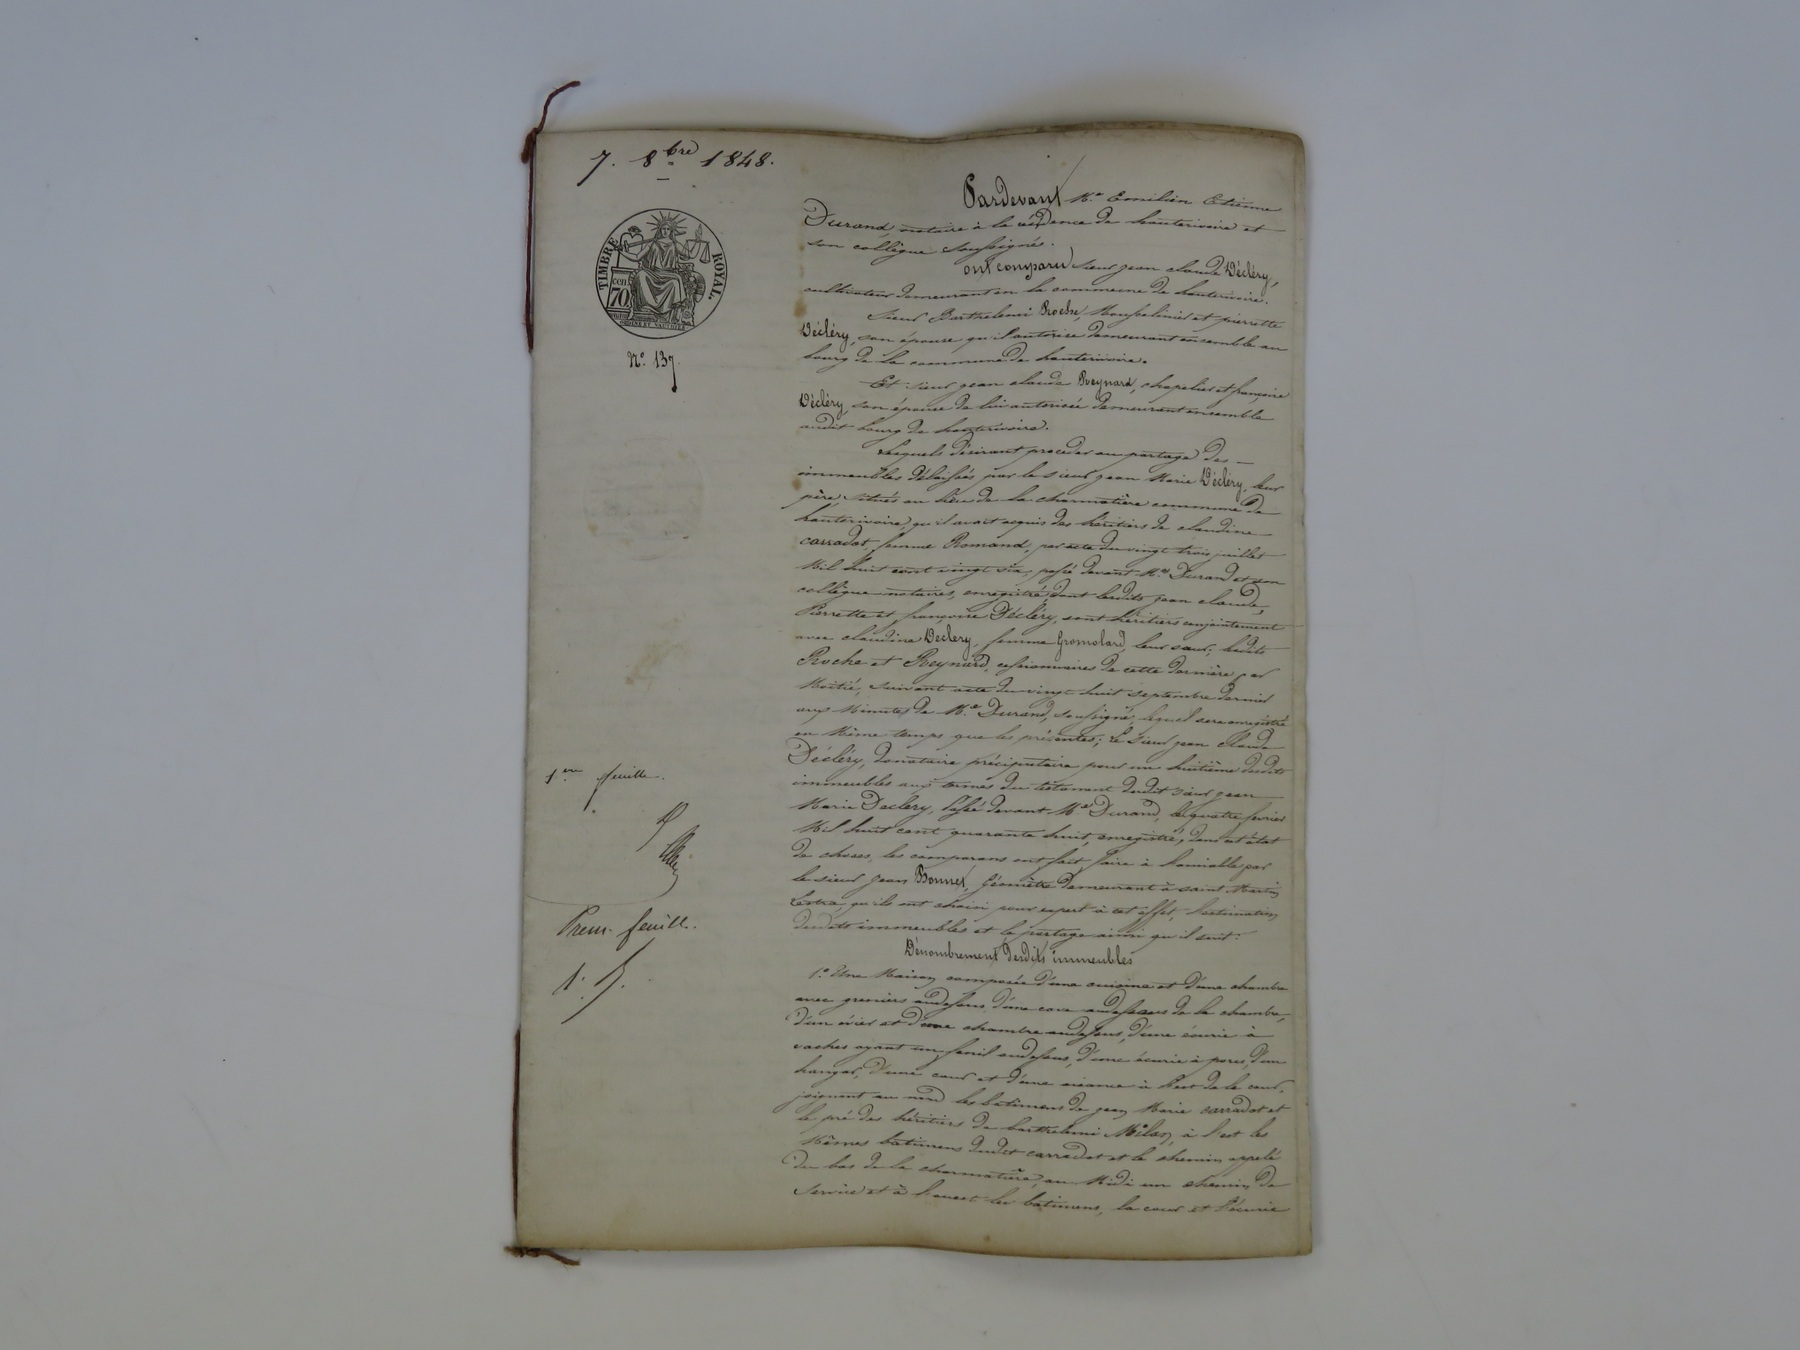 7. 8bre 1848.
TIMBRE ROYAL.
cen. 70.
N.o 137.
Pardevant M.e Emilien Etienne
Durand, notaire à la résidence de hauterivoire et
son collègue soussignés.
ont comparu sieur jean claude Décléry,
cultivateur demeurant en la commune de hauterivoire.
Sieur Barthelemi Roche, Mousselinier et pierrette
Décléry, son épouse qu'il autorise demeurant ensemble au
bourg de la commune de hauterivoire.
Et sieur jean claude Reynard, chapelier et françoise
Décléry, son épouse de lui autorisée demeurant ensemble
audit bourg de hauterivoire.
Lesquels désirant procéder au partage des
immeubles délaissés par le sieur jean Marie Décléry, leur
père situés au lieu de la charmatière commune de
hauterivoire, qu'il avait acquis des héritiers de claudine
carradot, femme Romand, par acte du vingt trois juillet
Mil huit cent vingt six, passé devant M.e Durand et son
collègue notaires, enregistré, dont lesdits jean claude,
Pierrette et françoise Décléry, sont héritiers conjointement
avec claudine Déclery, femme Gromolard, leur sœur; lesdits
Roche et Reynard, cessionnaires de cette dernière par
Moitié, suivant acte du vingt huit septembre dernier
aux Minutes de M.e Durand, soussigné, lequel sera enregistré
en Même temps que les présentes; Le sieur jean claude
Décléry, donataire préciputaire pour un huitième desdits
immeubles aux termes du testament dudit sieur jean
Marie Declery, passé devant M.e Durand, le quatre février
Mil huit cent quarante huit, enregistré, dans cet état
de choses, les comparans ont fait faire à l'amiable par
le sieur jean Bonnet, Géomètre demeurant à saint Martin
Lestra, qu'ils ont choisi pour expert à cet effet, l'estimation
desdits immeubles et le partage ainsi qu'il suit:
Dénombrement desdits immeubles
1.o Une Maison composée d'une cuisine et d'une chambre
avec greniers audessus, d'une cave audessous de la chambre,
d'un évier et d'une chambre audessus, d'une écurie à
vaches ayant un fenil audessus, d'une écurie à porcs, d'un
hangar, d'une cour et d'une aisance à l'est de la cour,
joignant au nord les bâtimens de jean Marie carradot et
le pré des héritiers de barthelemi Milan, à l'est les
Mêmes bâtimens dudit carradot et le chemin appelé
du bas de la charmatière, au Midi un chemin de
service et à l'ouest les bâtimens, la cour et l'écurie
1.ere feuille.
Prem. feuille.